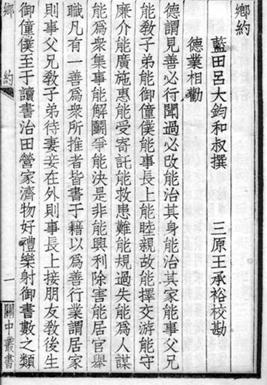 鄉約
藍田呂大鈞和叔撰　三原王承裕校勘
德業相勸
德謂見善必行聞過必改能治其身能治其家能事父兄
能敎子弟能御僮僕能事長上能睦親故能擇交游能守
廉介能廣施惠能受寄託能救患難能規過失能爲人謀
能爲衆集事能解鬭爭能決是非能興利除害能居官舉
職凡有一善爲衆所推者皆書于籍以爲善行業謂居家
則事父兄敎子弟待妻妾在外則事長上接朋友敎後生
御僮僕至于讀書治田營家濟物好禮樂射御書數之類
鄉約　一　關中叢書